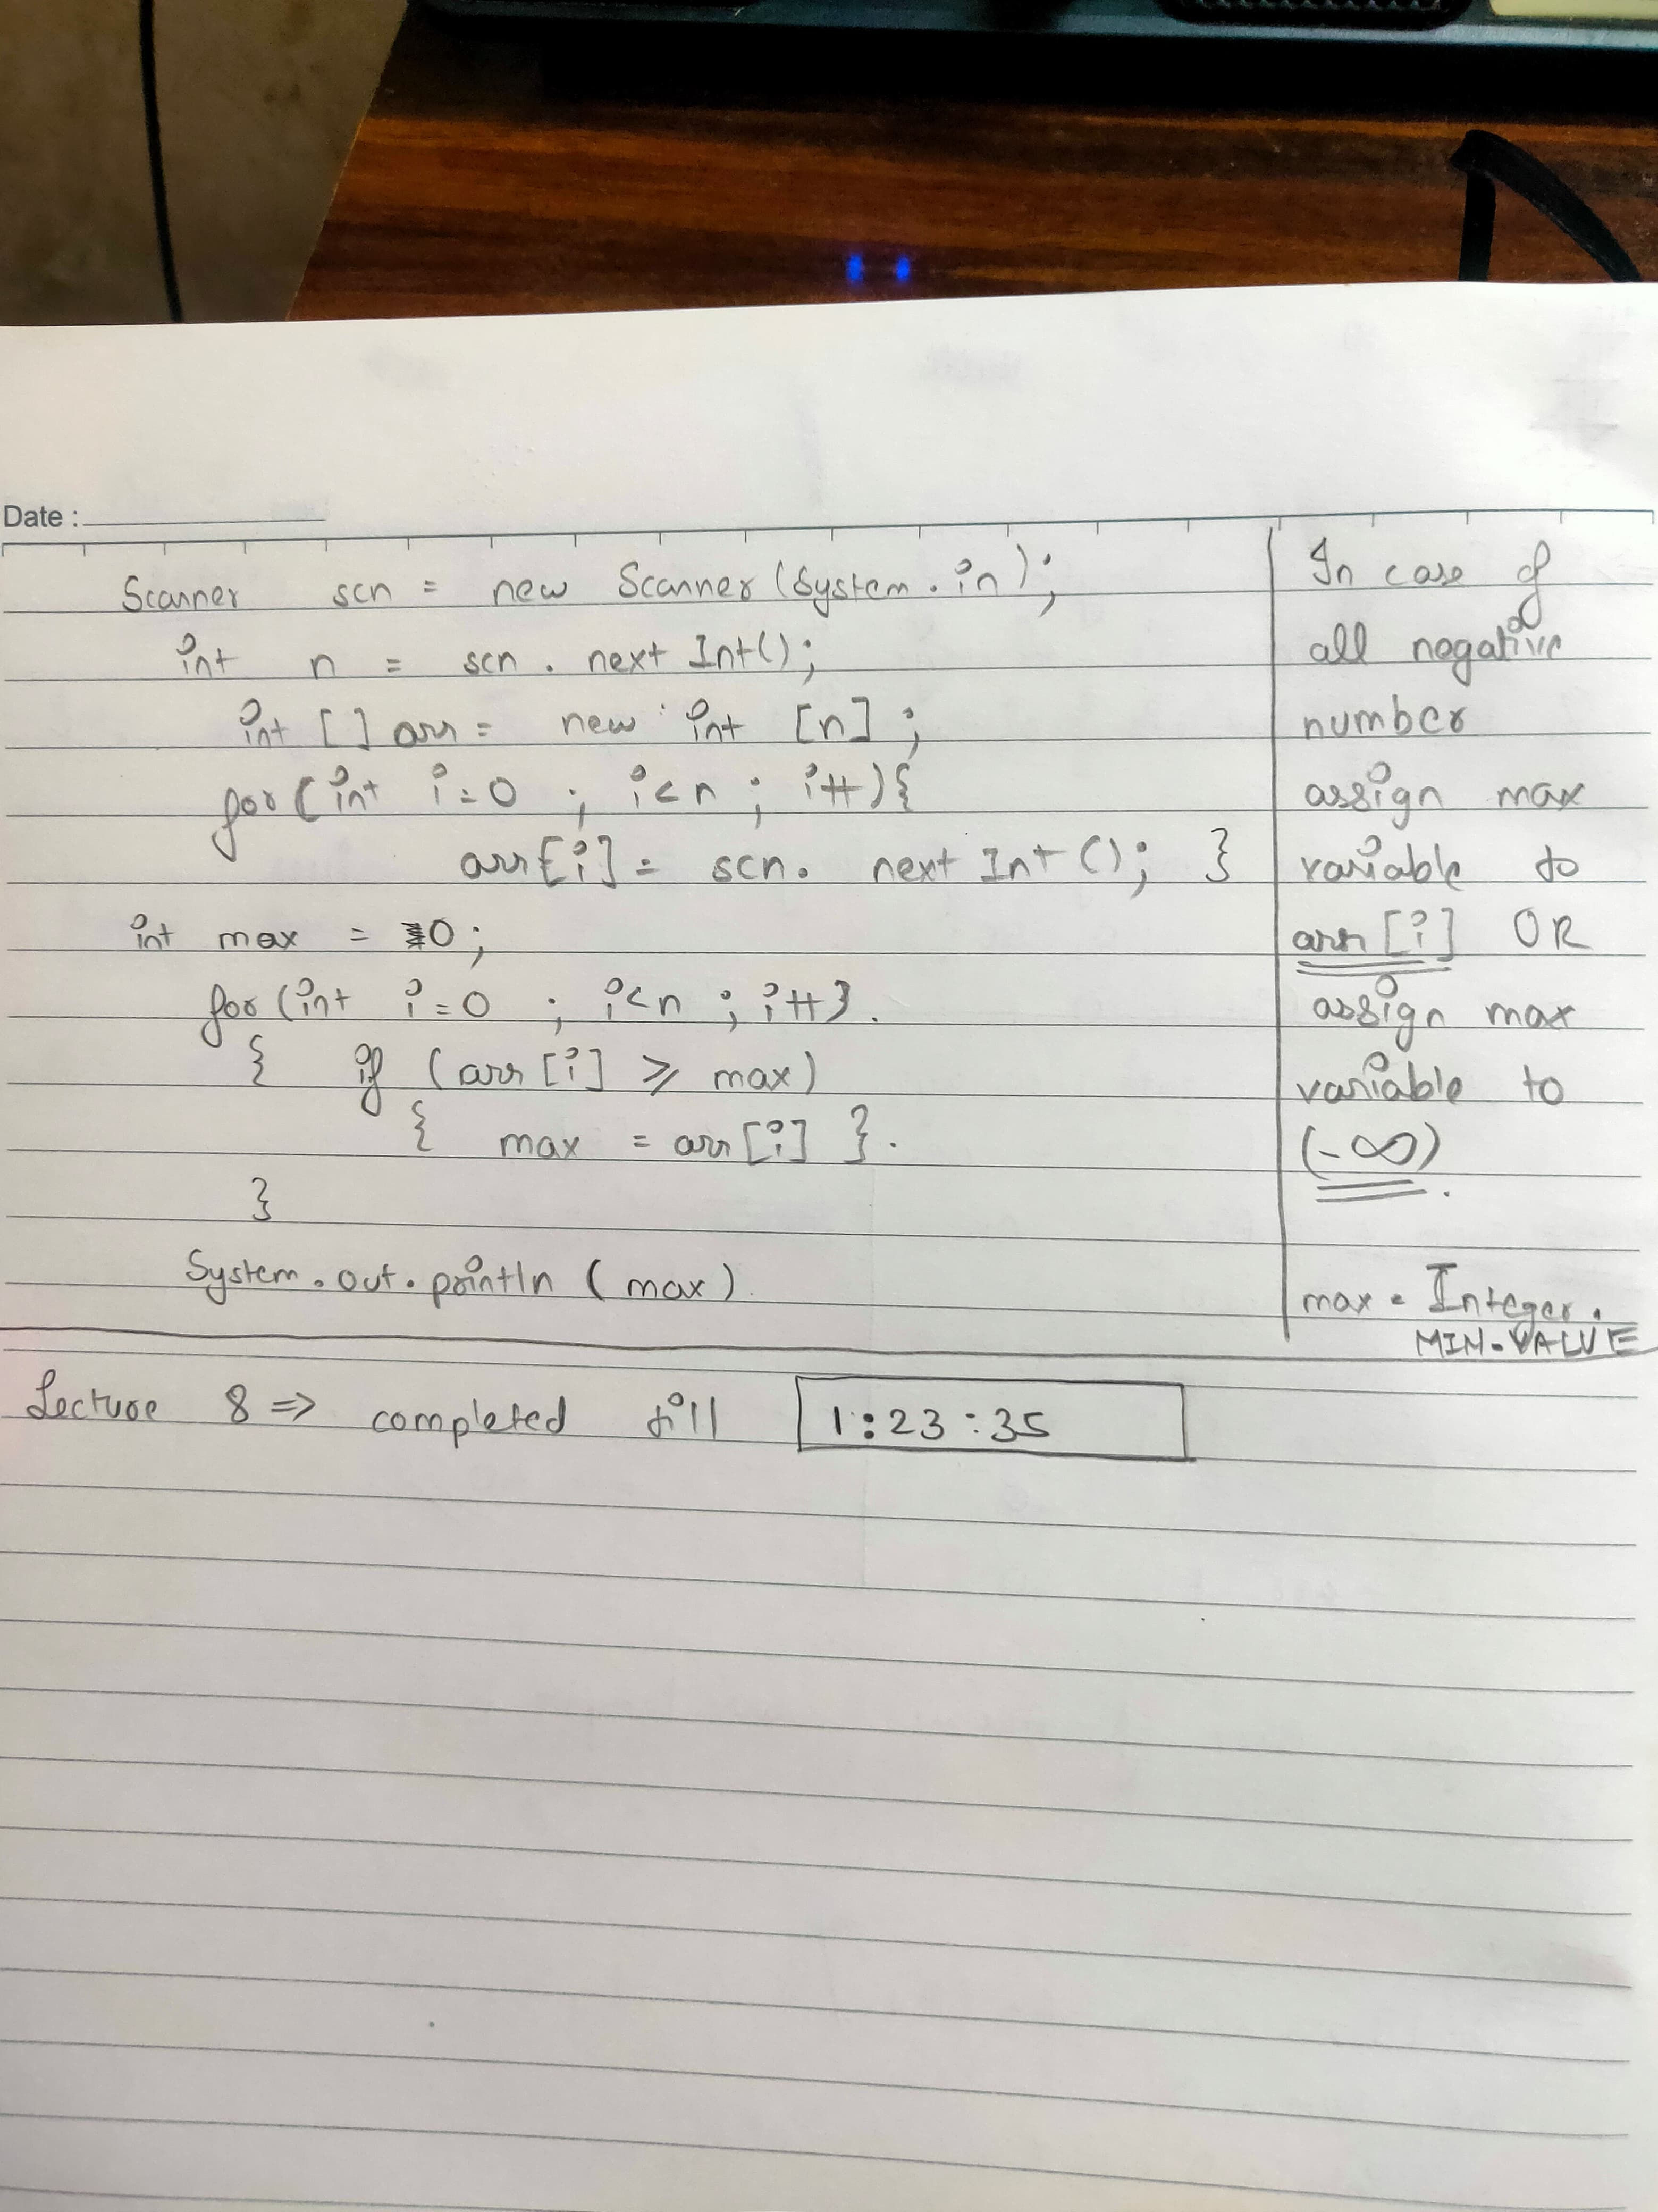 Date :
Scanner scn = new Scanner (System . in );
int n = scn . next Int();
int [ ] arr = new int [n] ;
for ( int i = 0 ; i < n ; i++ ) {
arr[i] = scn. next Int (); }
int max = 0 ;
for (int i = 0 ; i<n ; i++).
{ if (arr [i] ≥ max)
{ max = arr [i] }.
}
System . out . println ( max )
In case of
all negative
number
assign max
variable to
arr [i] OR
assign max
variable to
(-∞).
max = Integer .
MIN-VALUE
Lecture 8 => completed till 1:23:35